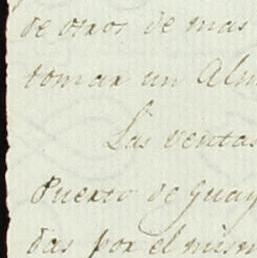 de otros de mas
tomar un Alm
Las ventas
Puerto de Guay
das por el mism